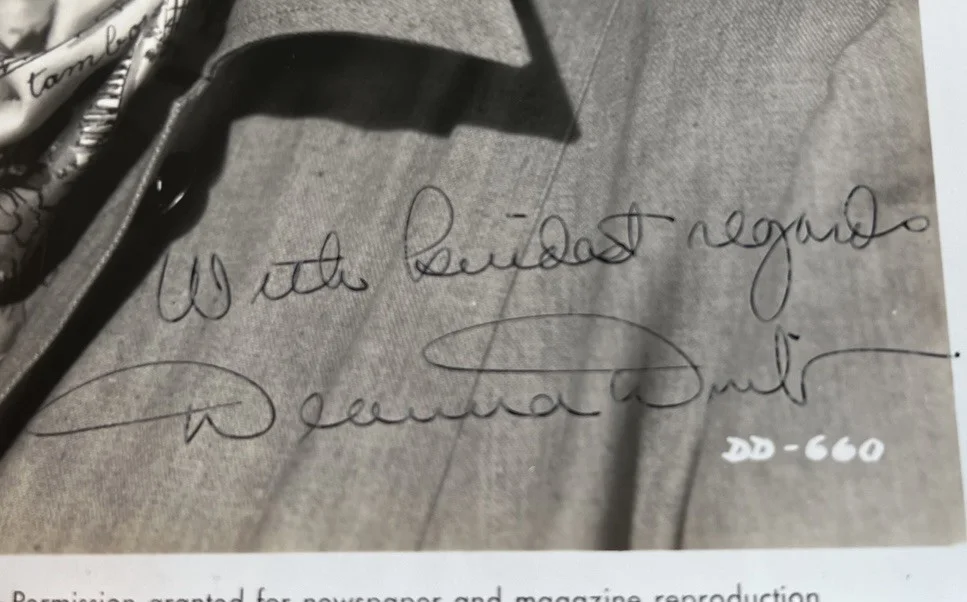 tambo
With kindest regards
Deanna Durbin
DD-660
Permission granted for newspaper and magazine reproduction